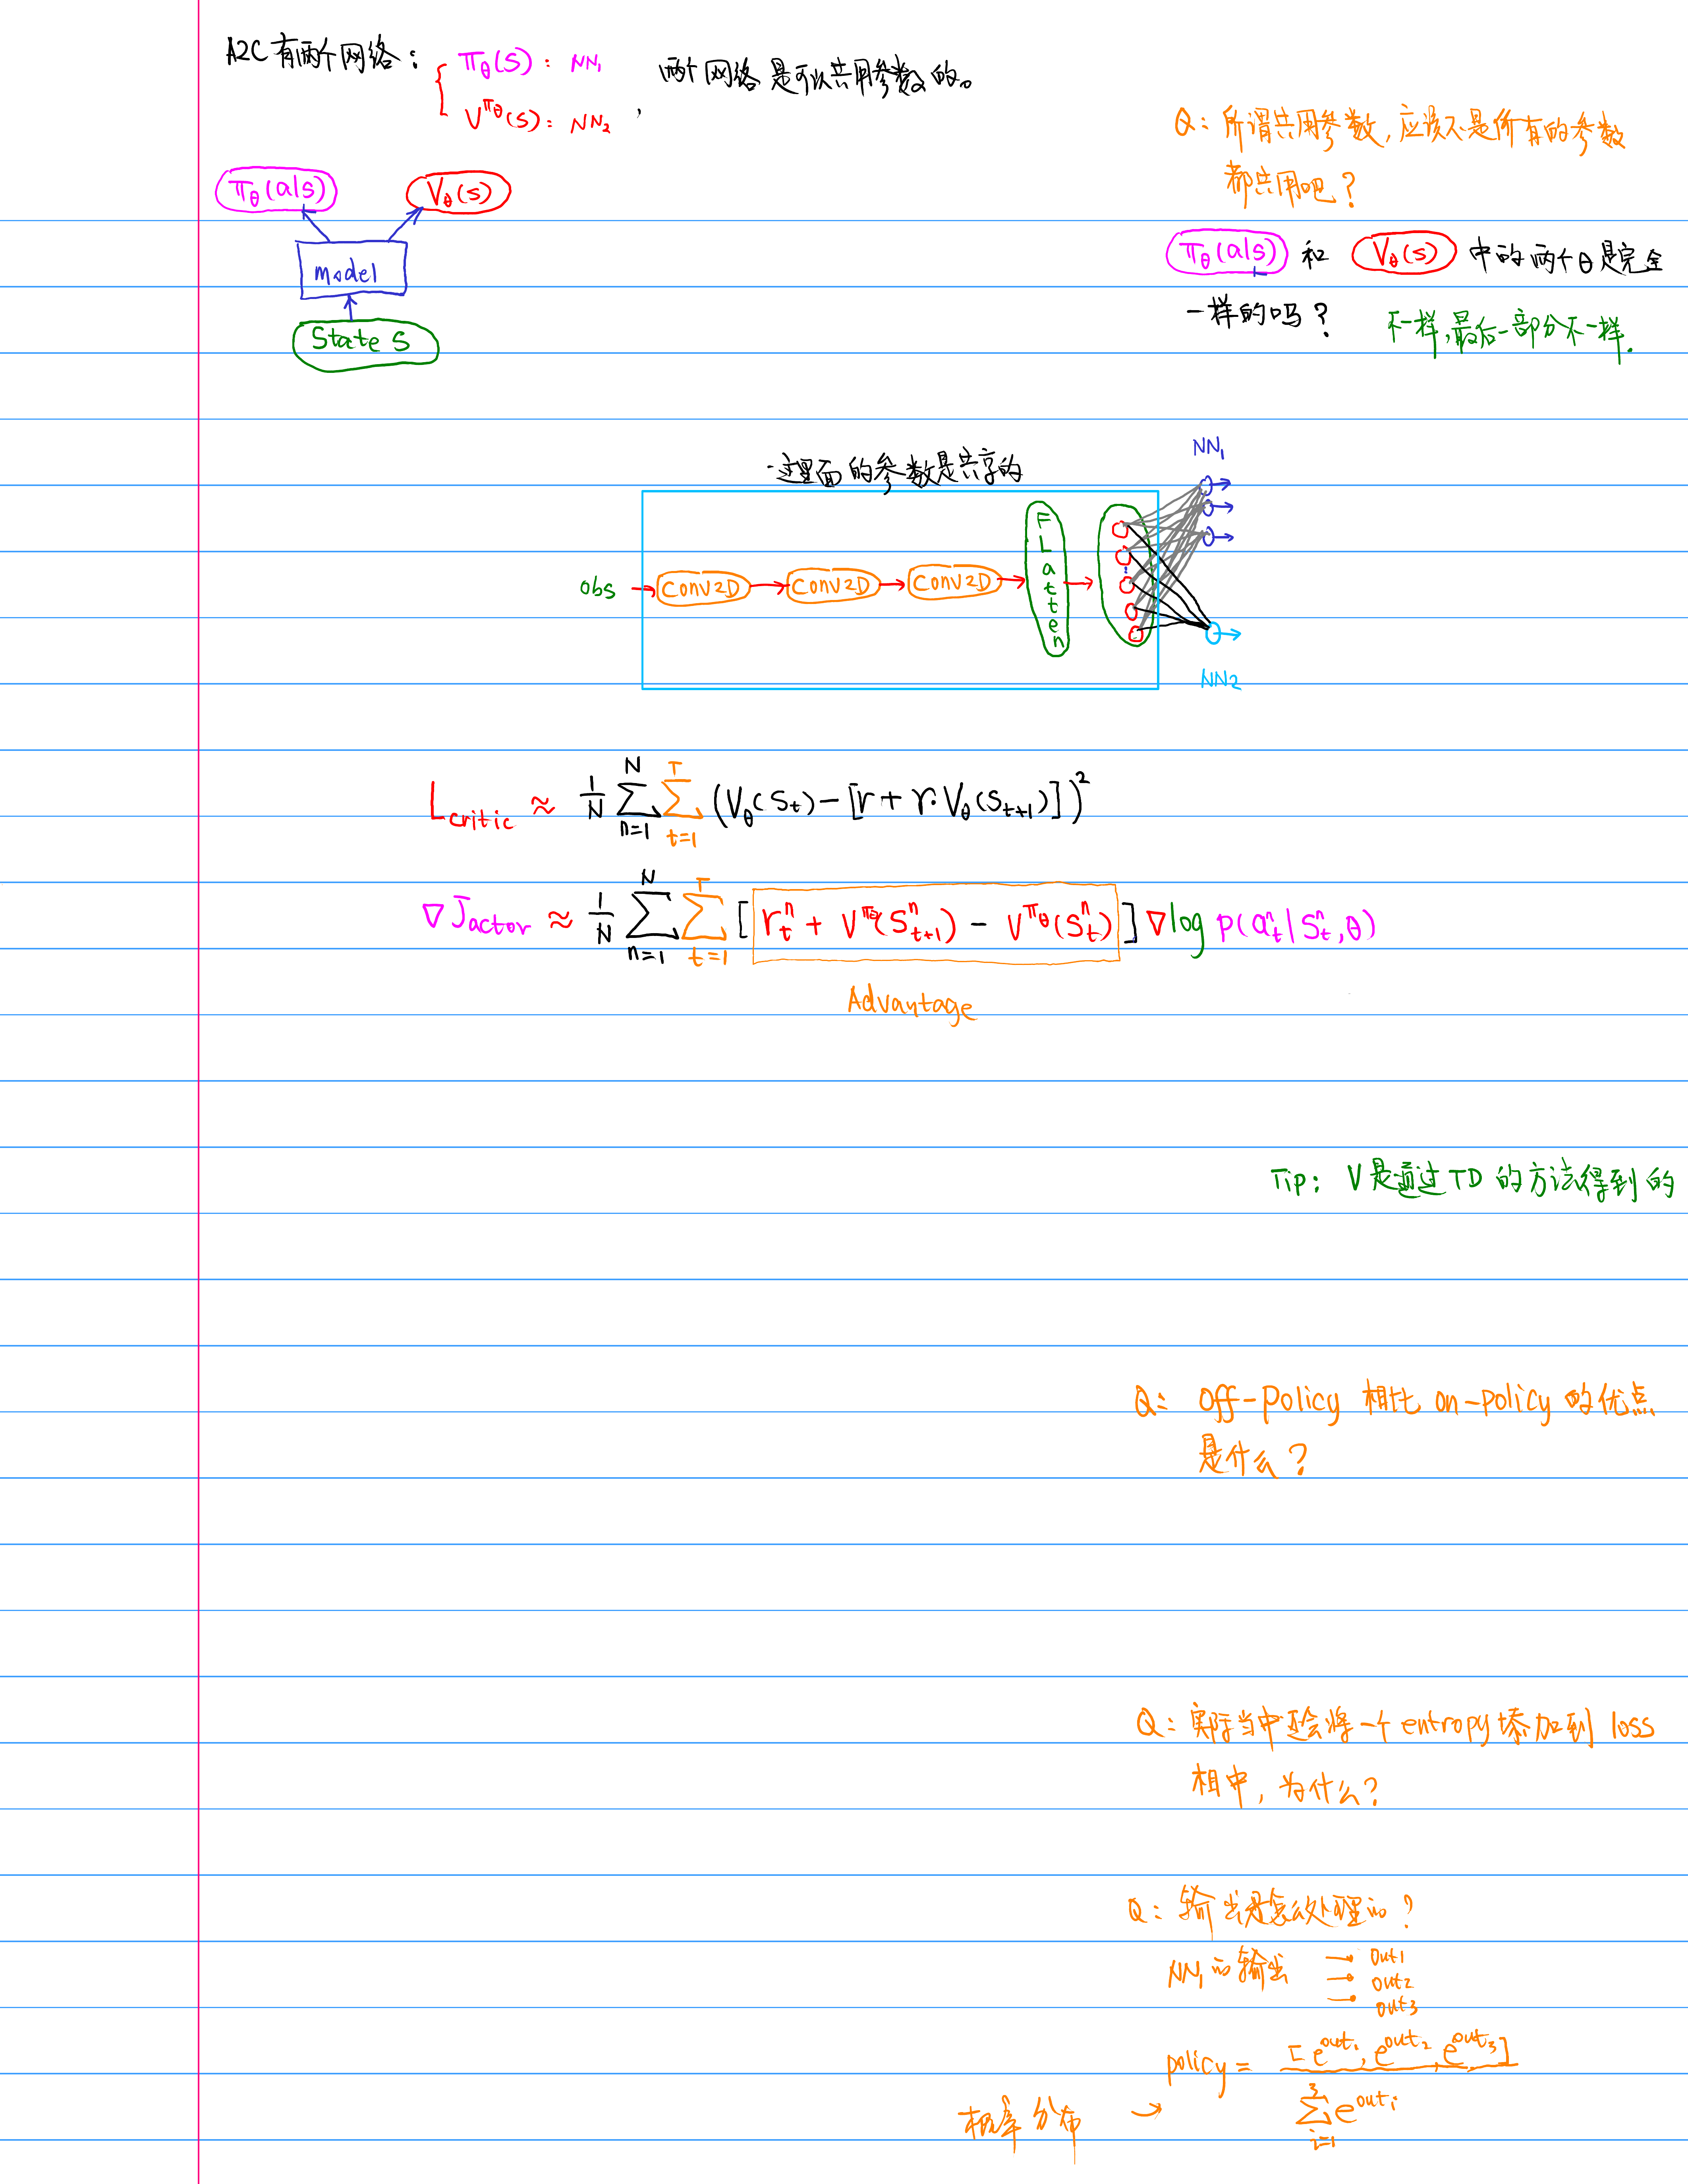 A2C有两个网络：
π_θ(s)：NN₁
V^{π_θ}(s)：NN₂
，两个网络是可以共用参数的。
Q：所谓共用参数，应该不是所有的参数
都共用吧？
π_θ(a|s)
V_θ(s)
model
State S
π_θ(a|s) 和 V_θ(s) 中的两个θ是完全
一样的吗？ 不一样，最后一部分不一样.
这里面的参数是共享的
NN₁
obs → Conv2D → Conv2D → Conv2D → FLatten →
NN2
L_critic ≈ 1/N ∑_{n=1}^{N} ∑_{t=1}^{T} (V_θ(S_t) - [r + γ·V_θ(S_{t+1})])²
∇J_actor ≈ 1/N ∑_{n=1}^{N} ∑_{t=1}^{T} [r_t^n + V^{π_θ}(S_{t+1}^n) - V^{π_θ}(S_t^n)] ∇log p(a_t^n|S_t^n,θ)
Advantage
Tip： V是通过TD的方法得到的
Q： off-policy 相比 on-policy 的优点
是什么？
Q：实际当中还会将一个entropy添加到 loss
相中，为什么？
Q：输出是怎么处理的？
NN₁的输出 → out1
→ out2
→ out3
policy = [e^{out₁}, e^{out₂}, e^{out₃}] / ∑_{i=1}^{3} e^{out_i}
概率分布 →